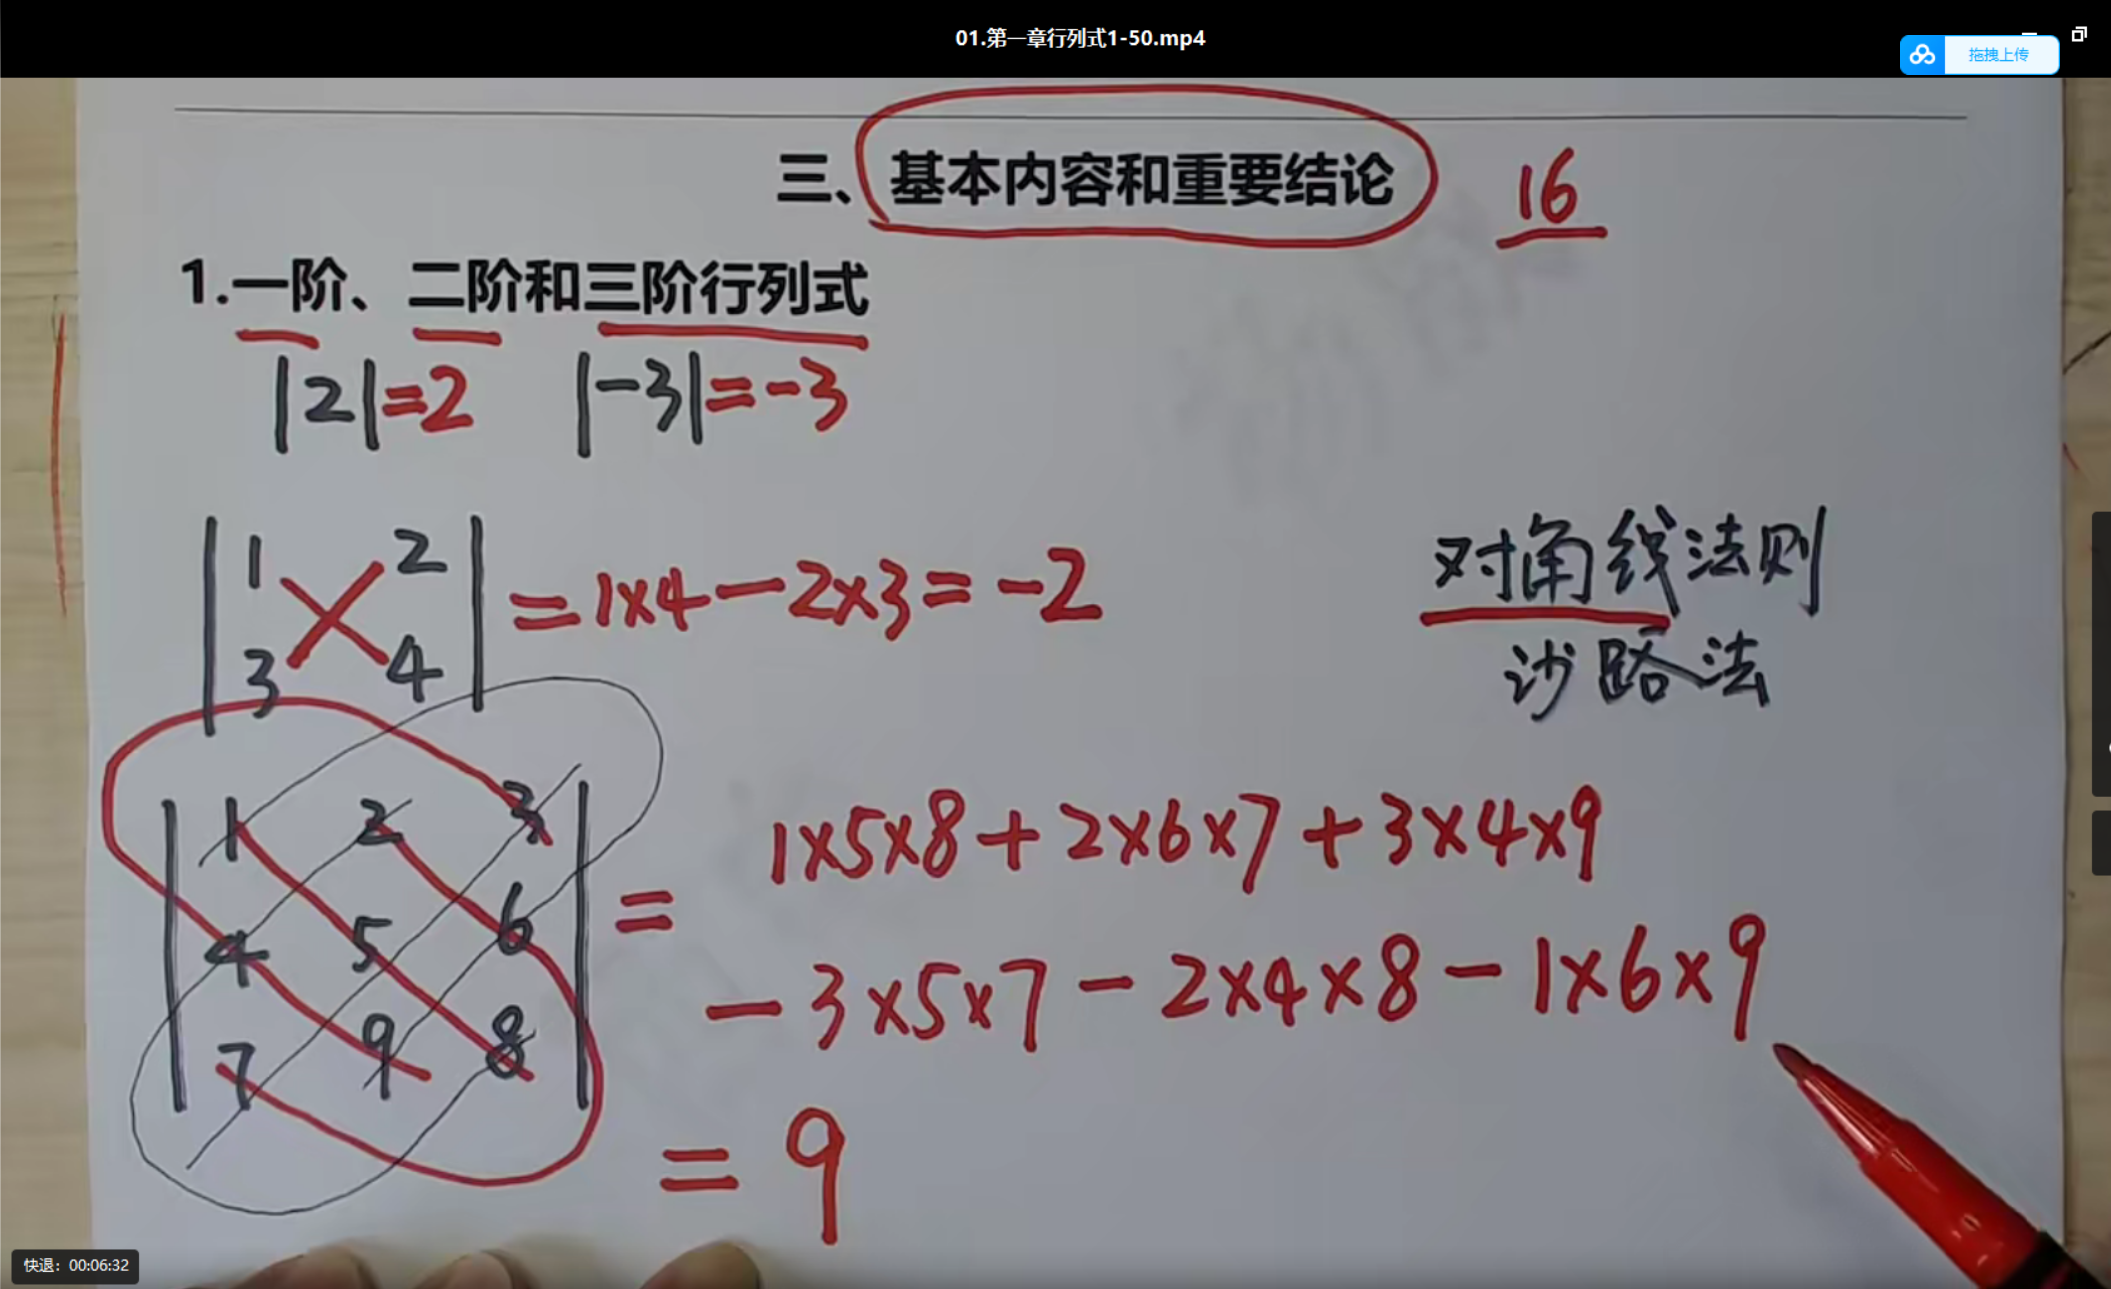 01.第一章行列式1-50.mp4
拖拽上传
三、基本内容和重要结论 16
1.一阶、二阶和三阶行列式
|2|=2 |-3|=-3
|1 2|
|3 4| =1×4-2×3=-2
对角线法则
沙路法
|1 2 3|
|4 5 6|
|7 9 8|
= 1×5×8+2×6×7+3×4×9
-3×5×7-2×4×8-1×6×9
=9
快退：00:06:32